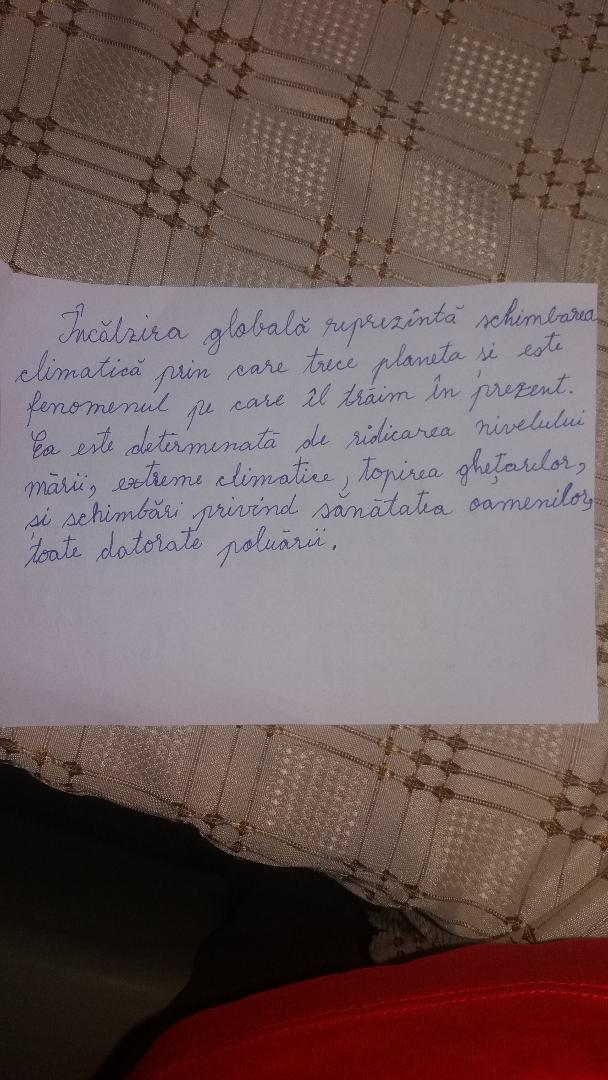 Încălzira globală reprezintă schimbarea
climatică prin care trece planeta și este
fenomenul pe care îl trăim în prezent.
Ea este determinată de ridicarea nivelului
mării, extreme climatice, topirea ghețarilor,
și schimbări privind sănătatea oamenilor,
toate datorate poluării.